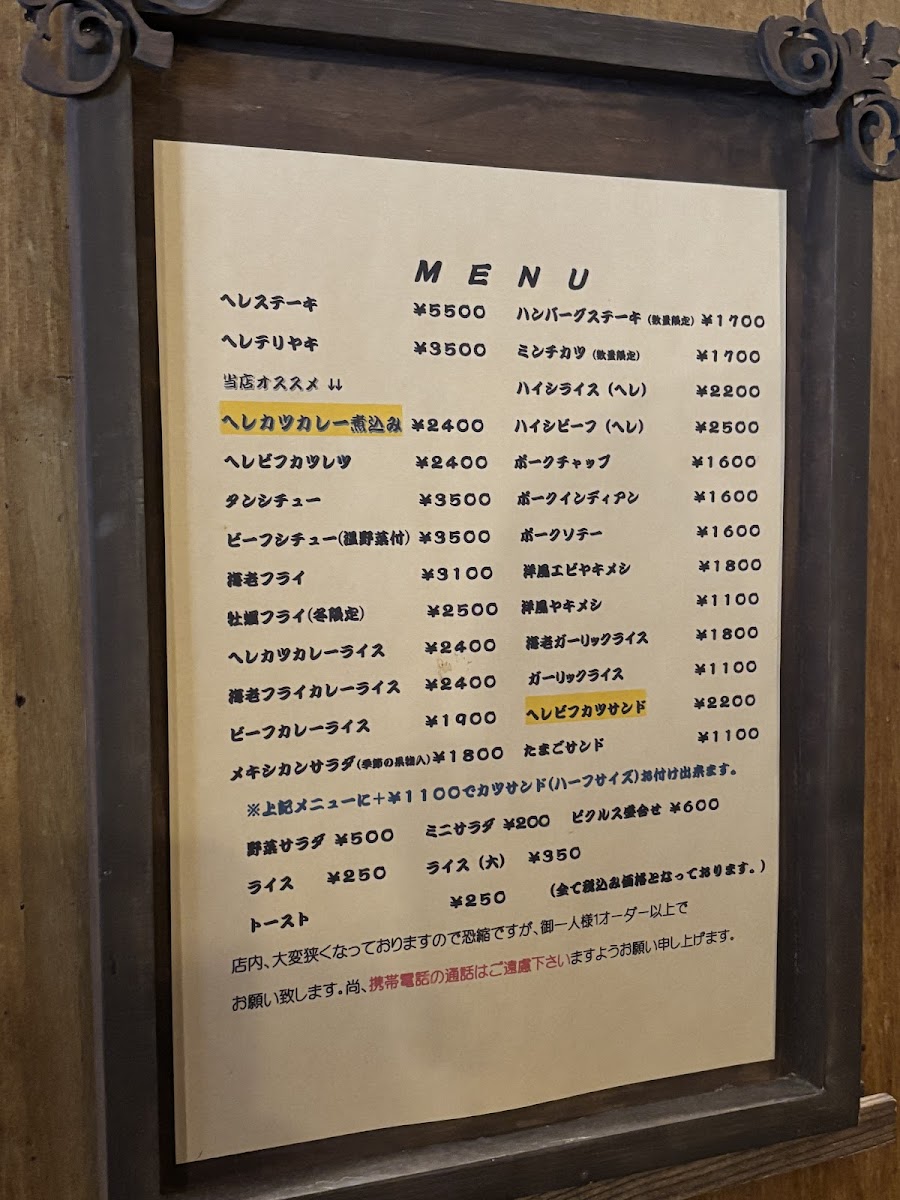 MENU
ヘレステーキ ¥5500
ヘレテリヤキ ¥3500
当店オススメ ↓↓
ヘレカツカレー煮込み ¥2400
ヘレビフカツレツ ¥2400
タンシチュー ¥3500
ビーフシチュー(温野菜付) ¥3500
海老フライ ¥3100
牡蠣フライ(冬限定) ¥2500
ヘレカツカレーライス ¥2400
海老フライカレーライス ¥2400
ビーフカレーライス ¥1900
メキシカンサラダ(季節の果物入) ¥1800
ハンバーグステーキ(数量限定) ¥1700
ミンチカツ(数量限定) ¥1700
ハイシライス(ヘレ) ¥2200
ハイシビーフ(ヘレ) ¥2500
ポークチャップ ¥1600
ポークインディアン ¥1600
ポークソテー ¥1600
洋風エビヤキメシ ¥1800
洋風ヤキメシ ¥1100
海老ガーリックライス ¥1800
ガーリックライス ¥1100
ヘレビフカツサンド ¥2200
たまごサンド ¥1100
※上記メニューに+¥1100でカツサンド(ハーフサイズ)お付け出来ます。
野菜サラダ ¥500 ミニサラダ ¥200 ピクルス盛合せ ¥600
ライス ¥250 ライス(大) ¥350
トースト ¥250 (全て税込み価格となっております。)
店内、大変狭くなっておりますので恐縮ですが、御一人様1オーダー以上で
お願い致します。尚、携帯電話の通話はご遠慮下さいますようお願い申し上げます。